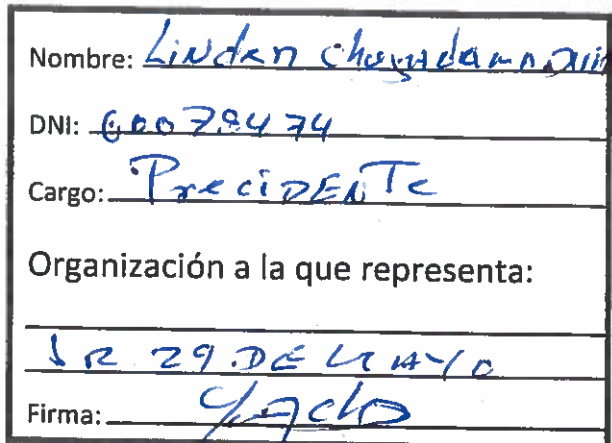 Nombre: Linden
DNI: 60079474
Cargo: PreciDENTe
Organización a la que representa:
JR 29 DE MAYO
Firma: